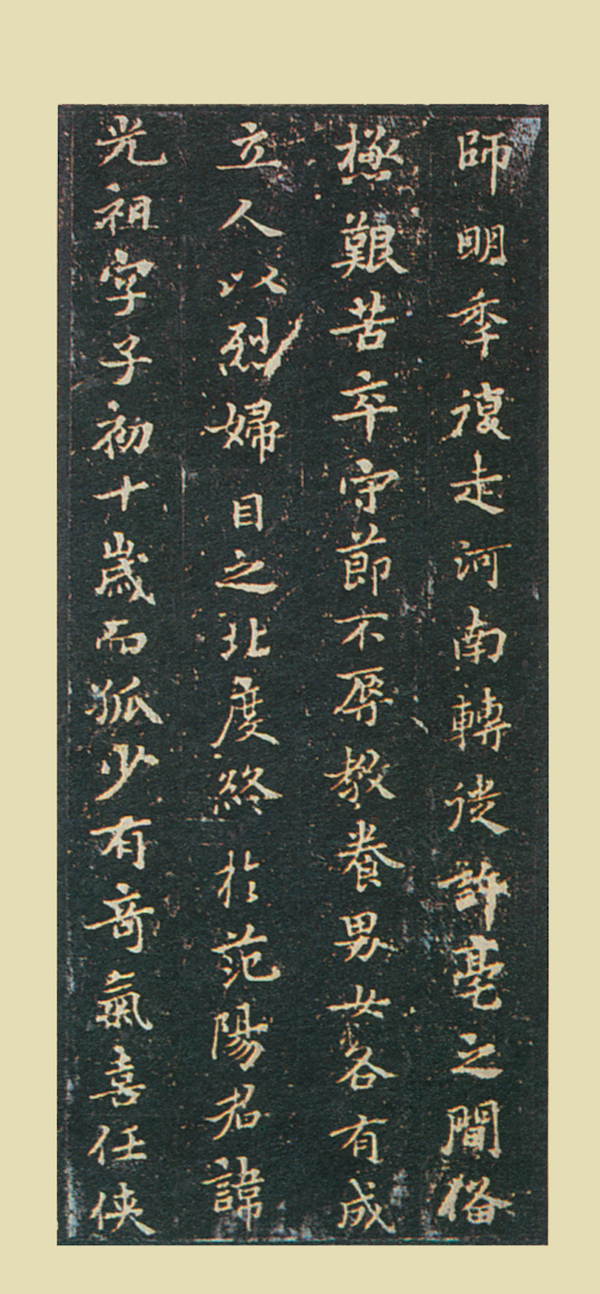 師明季復走河南轉徙許亳之間備
極艱苦卒守節不辱教養男女各有成
立人以烈婦目之北度終於范陽君諱
光祖字子初十歲而孤少有奇氣喜任俠